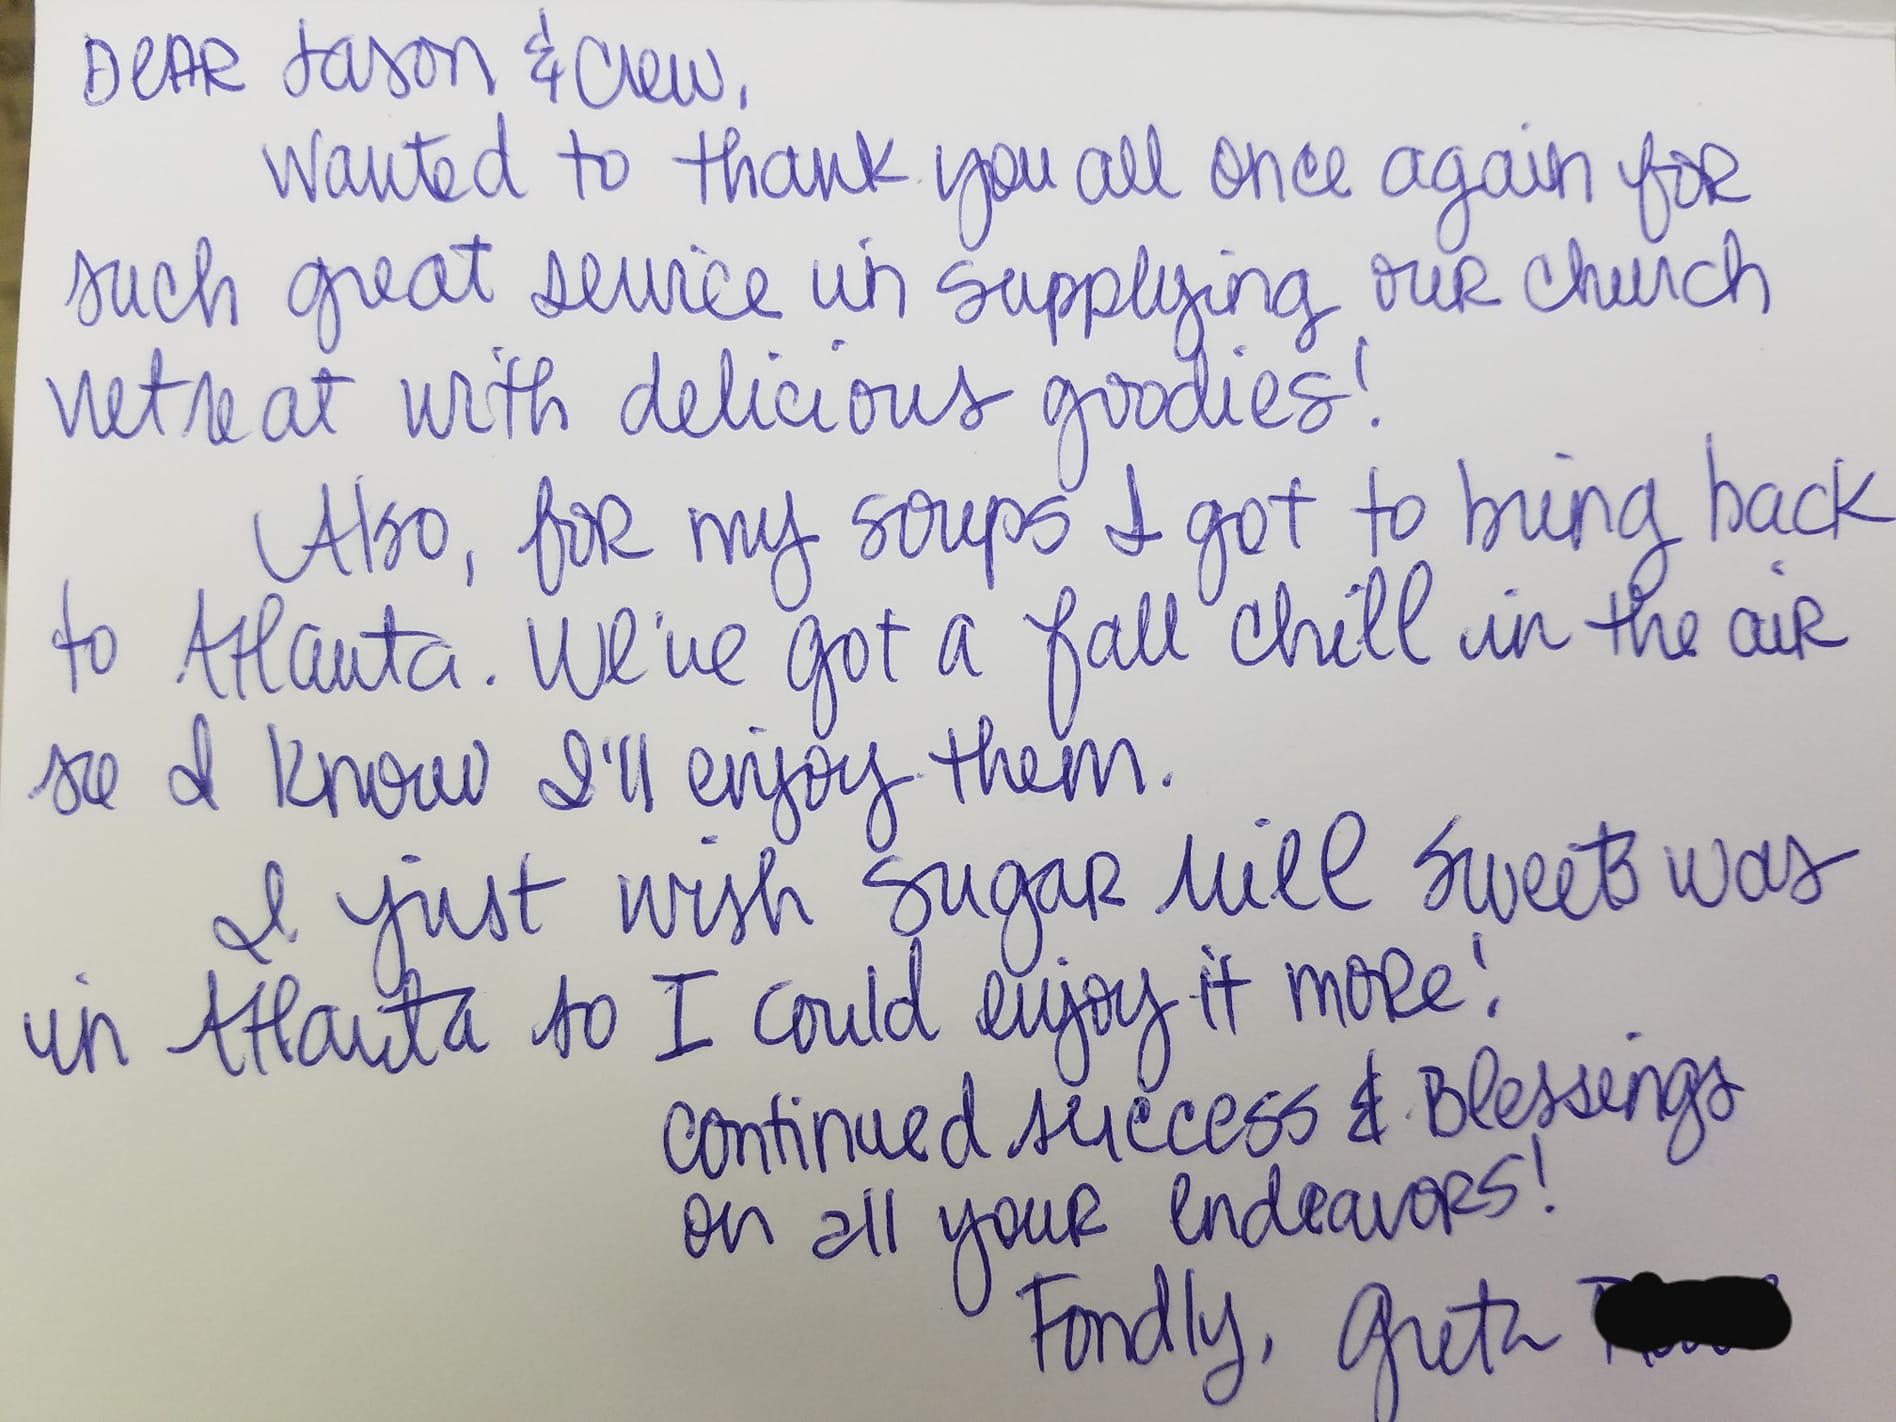 DEAR Jason & Crew,
Wanted to thank you all once again for
such great service in supplying our church
retreat with delicious goodies!
Also, for my soups I got to bring back
to Atlanta. We've got a fall chill in the air
so I know I'll enjoy them.
I just wish Sugar Mill Sweets was
in Atlanta so I could enjoy it more!
Continued success & Blessings
on all your endeavors!
Fondly, Greta